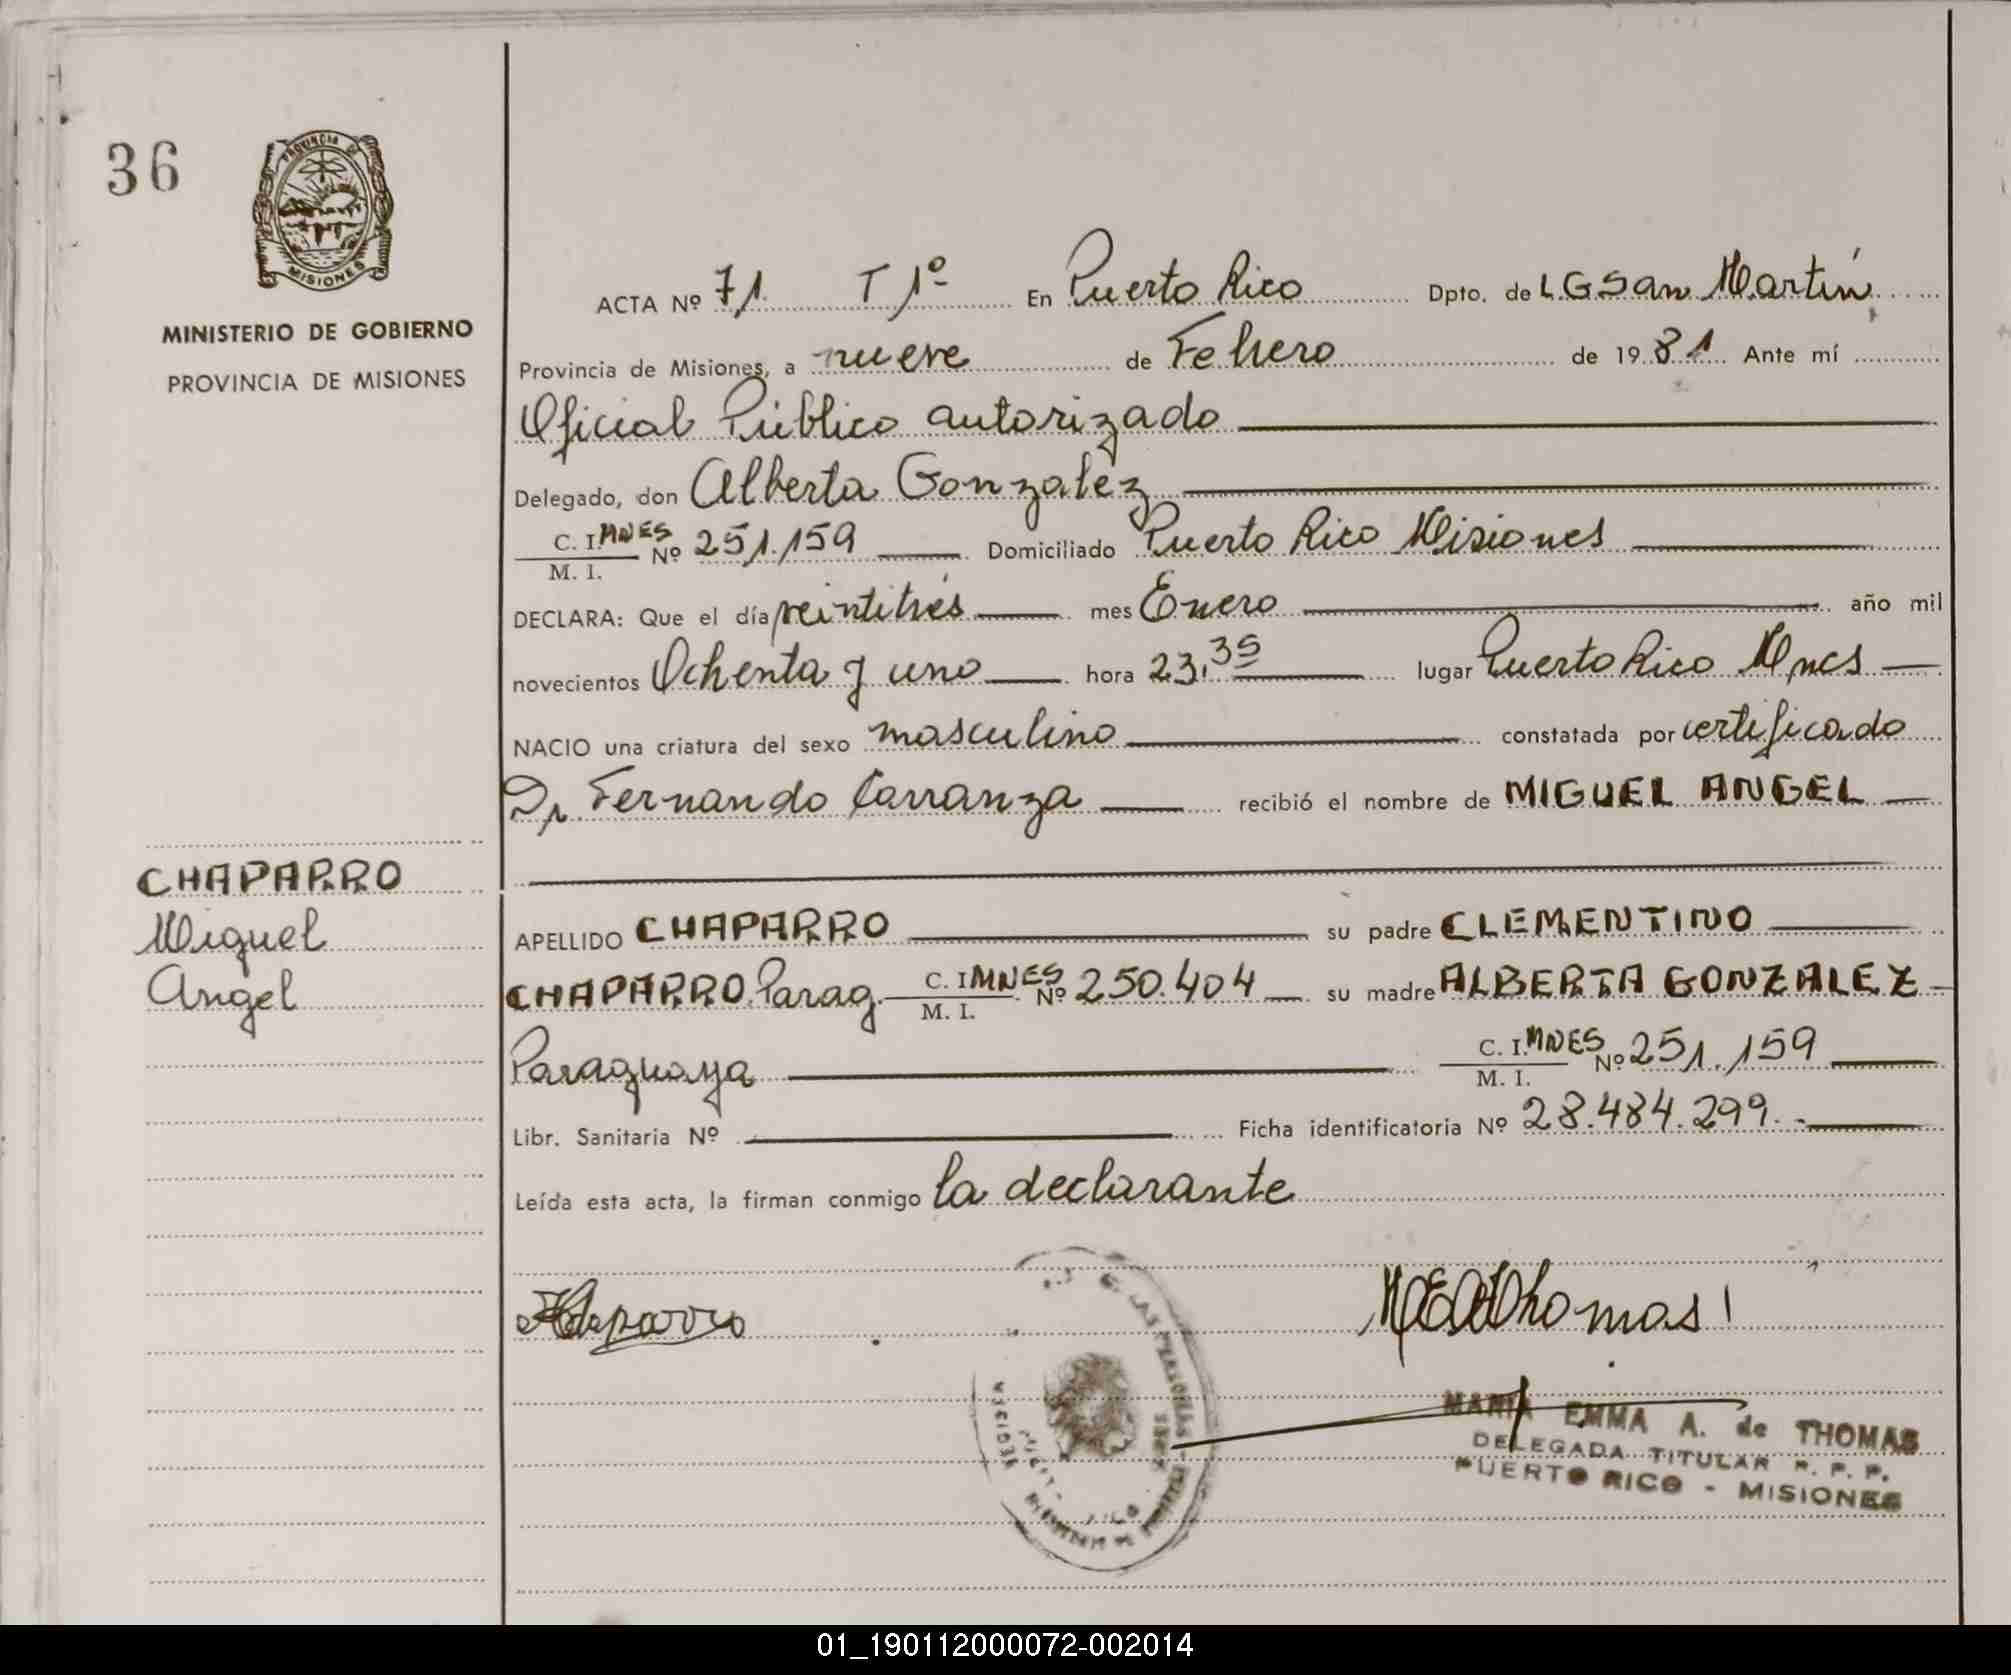 36
PROVINCIA DE
MISIONES
MINISTERIO DE GOBIERNO
PROVINCIA DE MISIONES
ACTA Nº 71 T 1º En Puerto Rico Dpto. de L.G.San Martín
Provincia de Misiones, a nueve de Febrero de 1981 Ante mí
Oficial Público autorizado
Delegado, don Alberta Gonzalez
C. I. MNES Nº 251.159 Domiciliado Puerto Rico Misiones
M. I.
DECLARA: Que el día veintitrés mes Enero año mil
novecientos Ochenta y uno hora 23,35 lugar Puerto Rico Mnes
NACIO una criatura del sexo masculino constatada por certificado
Dr. Fernando Carranza recibió el nombre de MIGUEL ANGEL
CHAPARRO
Miguel
Angel
APELLIDO CHAPARRO su padre CLEMENTINO
CHAPARRO Parag. C. I. MNES Nº 250.404 su madre ALBERTA GONZALEZ
M. I.
Paraguaya C. I. MNES Nº 251.159
M. I.
Libr. Sanitaria Nº Ficha identificatoria Nº 28.484.299.-
Leída esta acta, la firman conmigo la declarante
MARIA EMMA A. de THOMAS
DELEGADA TITULAR R. P. P.
PUERTO RICO - MISIONES
01_190112000072-002014